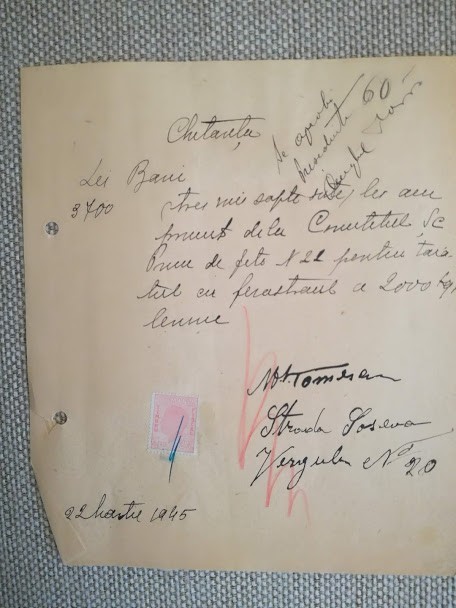 Chitanța
60
Se aprobă
Lei Bani
3700
trei mii șapte sute, lei am
primit dela Comitetul Șc
Prim de fete N 22 pentru taia-
tul cu ferastraul a 2000 kg
lemne
Strada Șoseua
Vergului Nº 20
22 Martie 1945